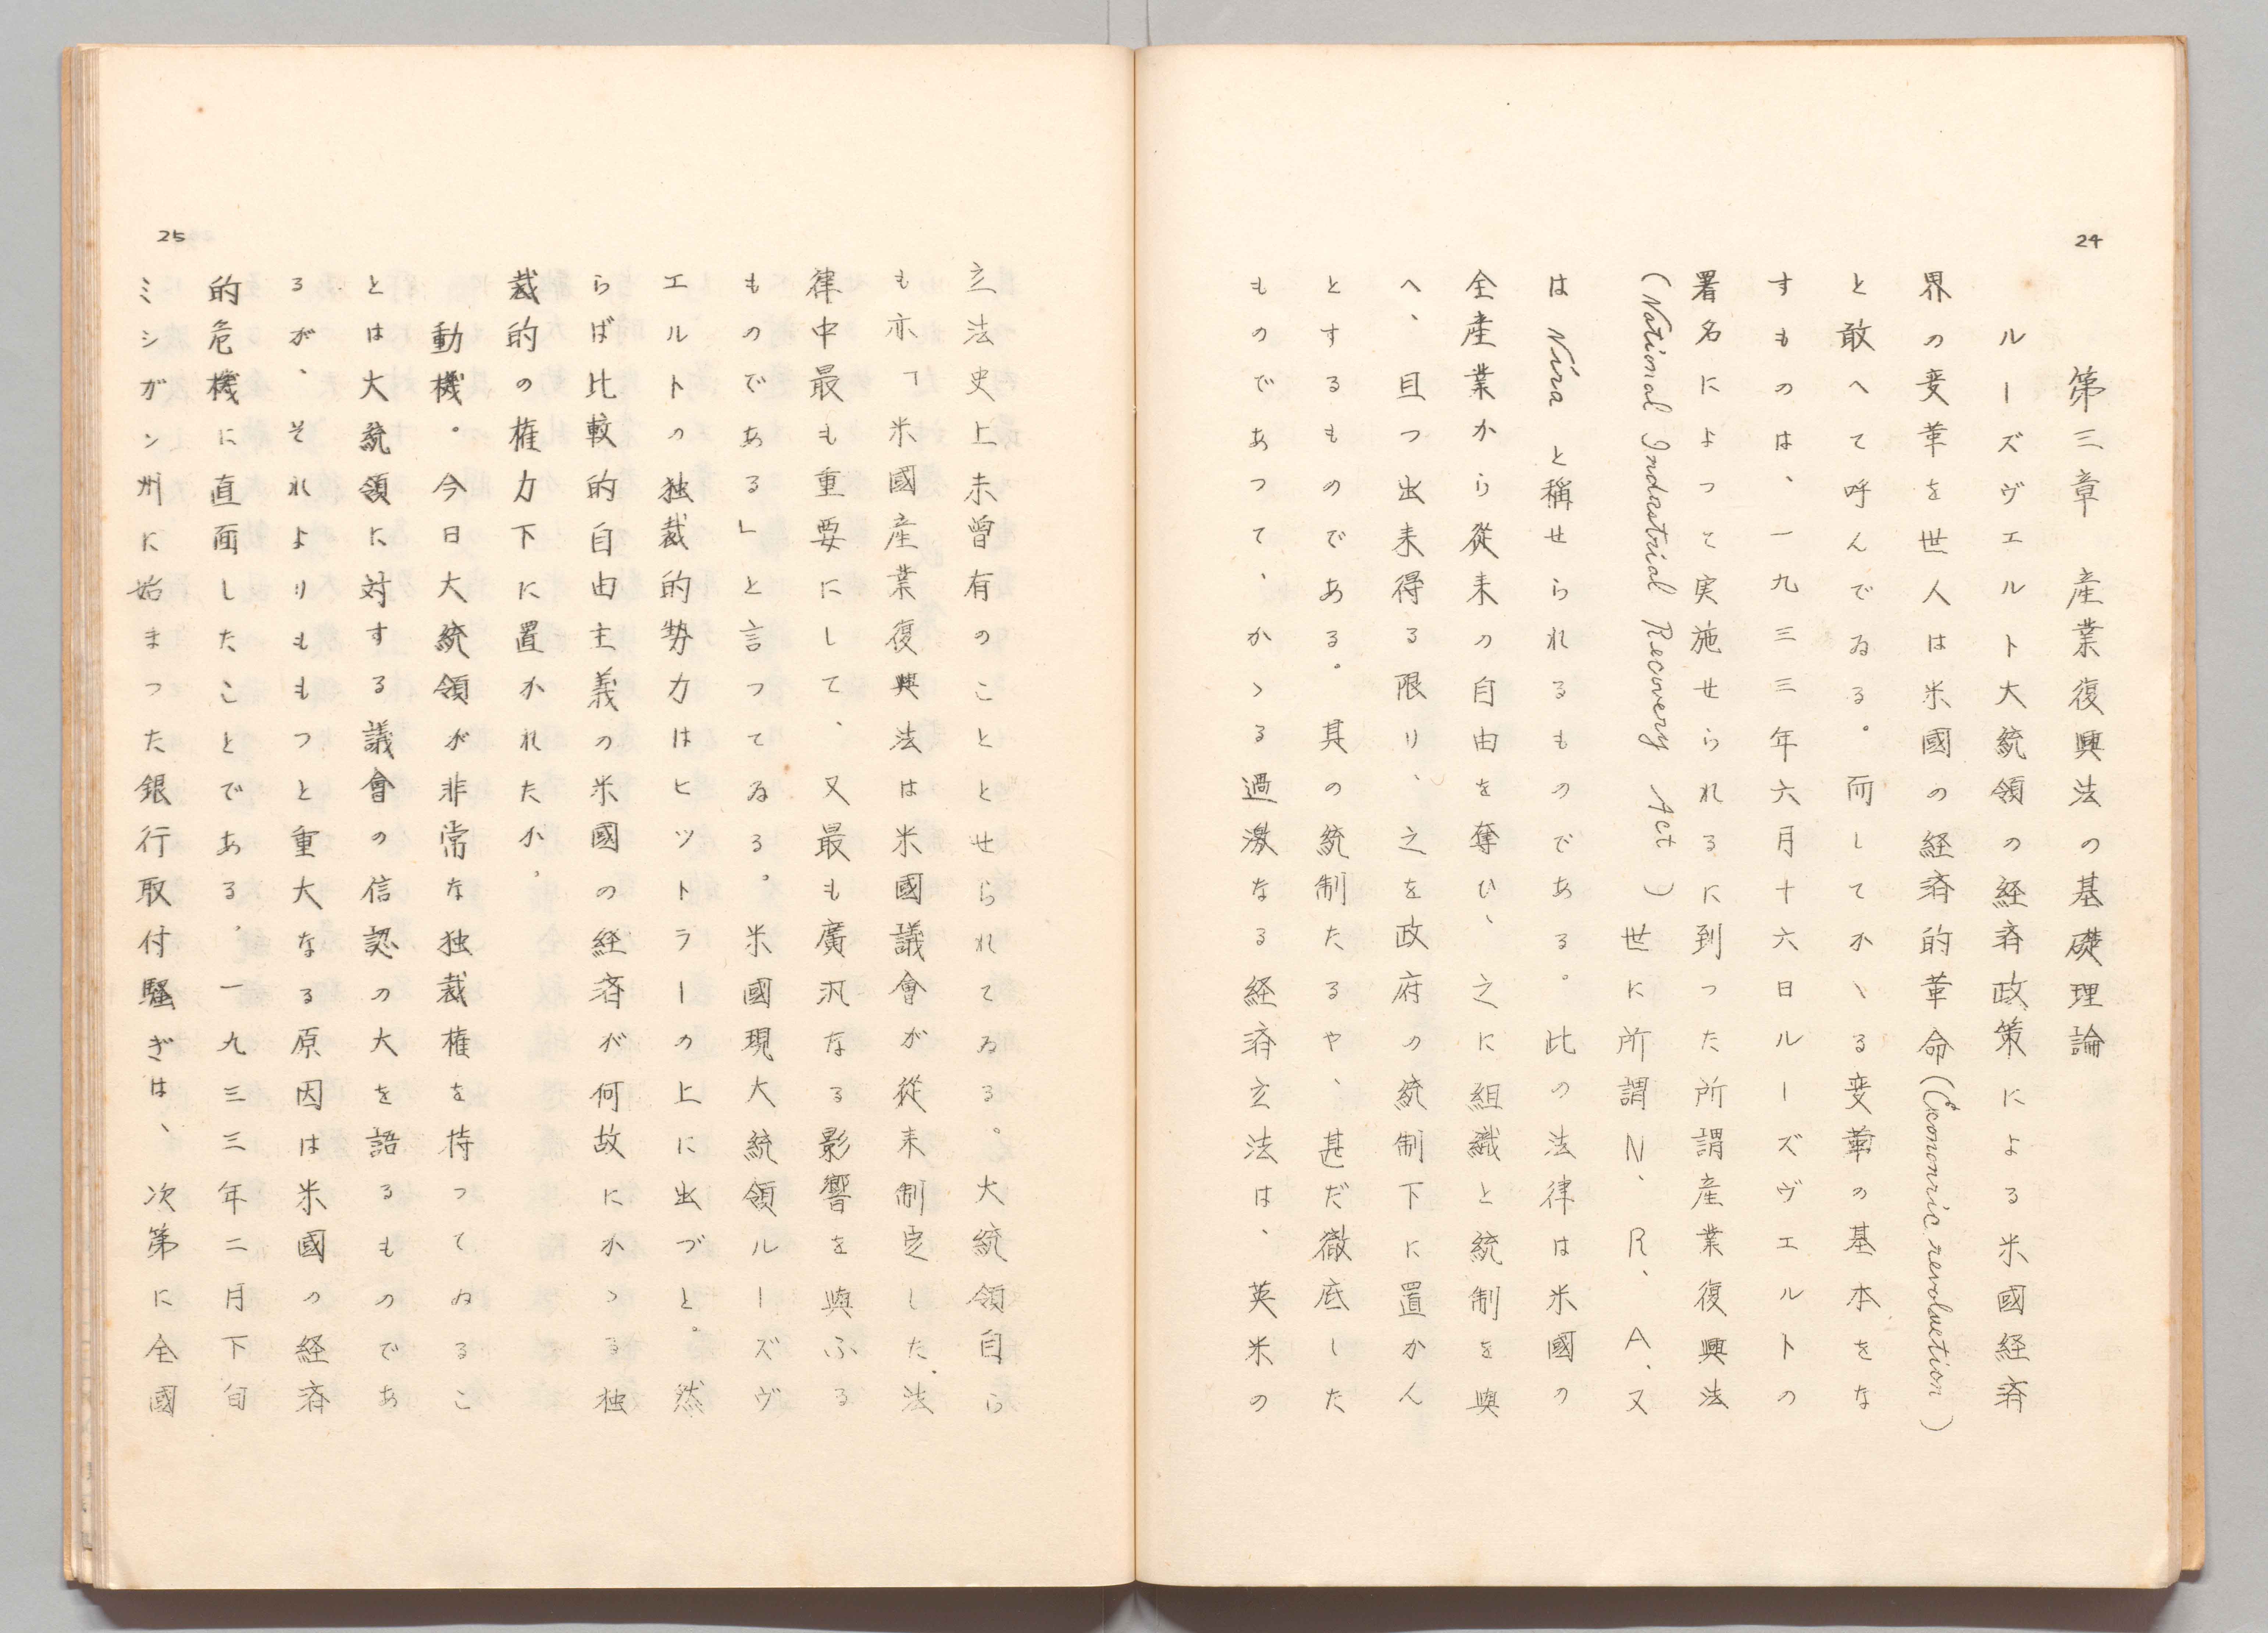 24
第三章　産業復興法の基礎理論
ルーズヴエルト大統領の経済政策による米國経済
界の変革を世人は米國の経済的革命(Economic revolution)
と敢へて呼んでゐる。而してかゝる変革の基本をな
すものは、一九三三年六月十六日ルーズヴエルトの
署名によつて実施せられるに到つた所謂産業復興法
(National Industrial Recovery Act)世に所謂N、R、A、又
は Nira と稱せられるものである。此の法律は米國の
全産業から従来の自由を奪ひ、之に組織と統制を與
へ、且つ出来得る限り、之を政府の統制下に置かん
とするものである。其の統制たるや、甚だ徹底した
ものであつて、かゝる過激なる経済立法は、英米の
25
立法史上未曾有のことゝせられてゐる。大統領自ら
も亦「米國産業復興法は米國議會が従来制定した法
律中最も重要にして、又最も廣汎なる影響を與ふる
ものである」と言つてゐる。米國現大統領ルーズヴ
エルトの独裁的勢力はヒツトラーの上に出づと。然
らば比較的自由主義の米國の経済が何故にかゝる独
裁的の権力下に置かれたか。
動機。今日大統領が非常な独裁権を持つてゐるこ
とは大統領に対する議會の信認の大を語るものであ
るが、それよりももつと重大なる原因は米國の経済
的危機に直面したことである。一九三三年二月下旬
ミシガン州に始まつた銀行取付騒ぎは、次第に全國